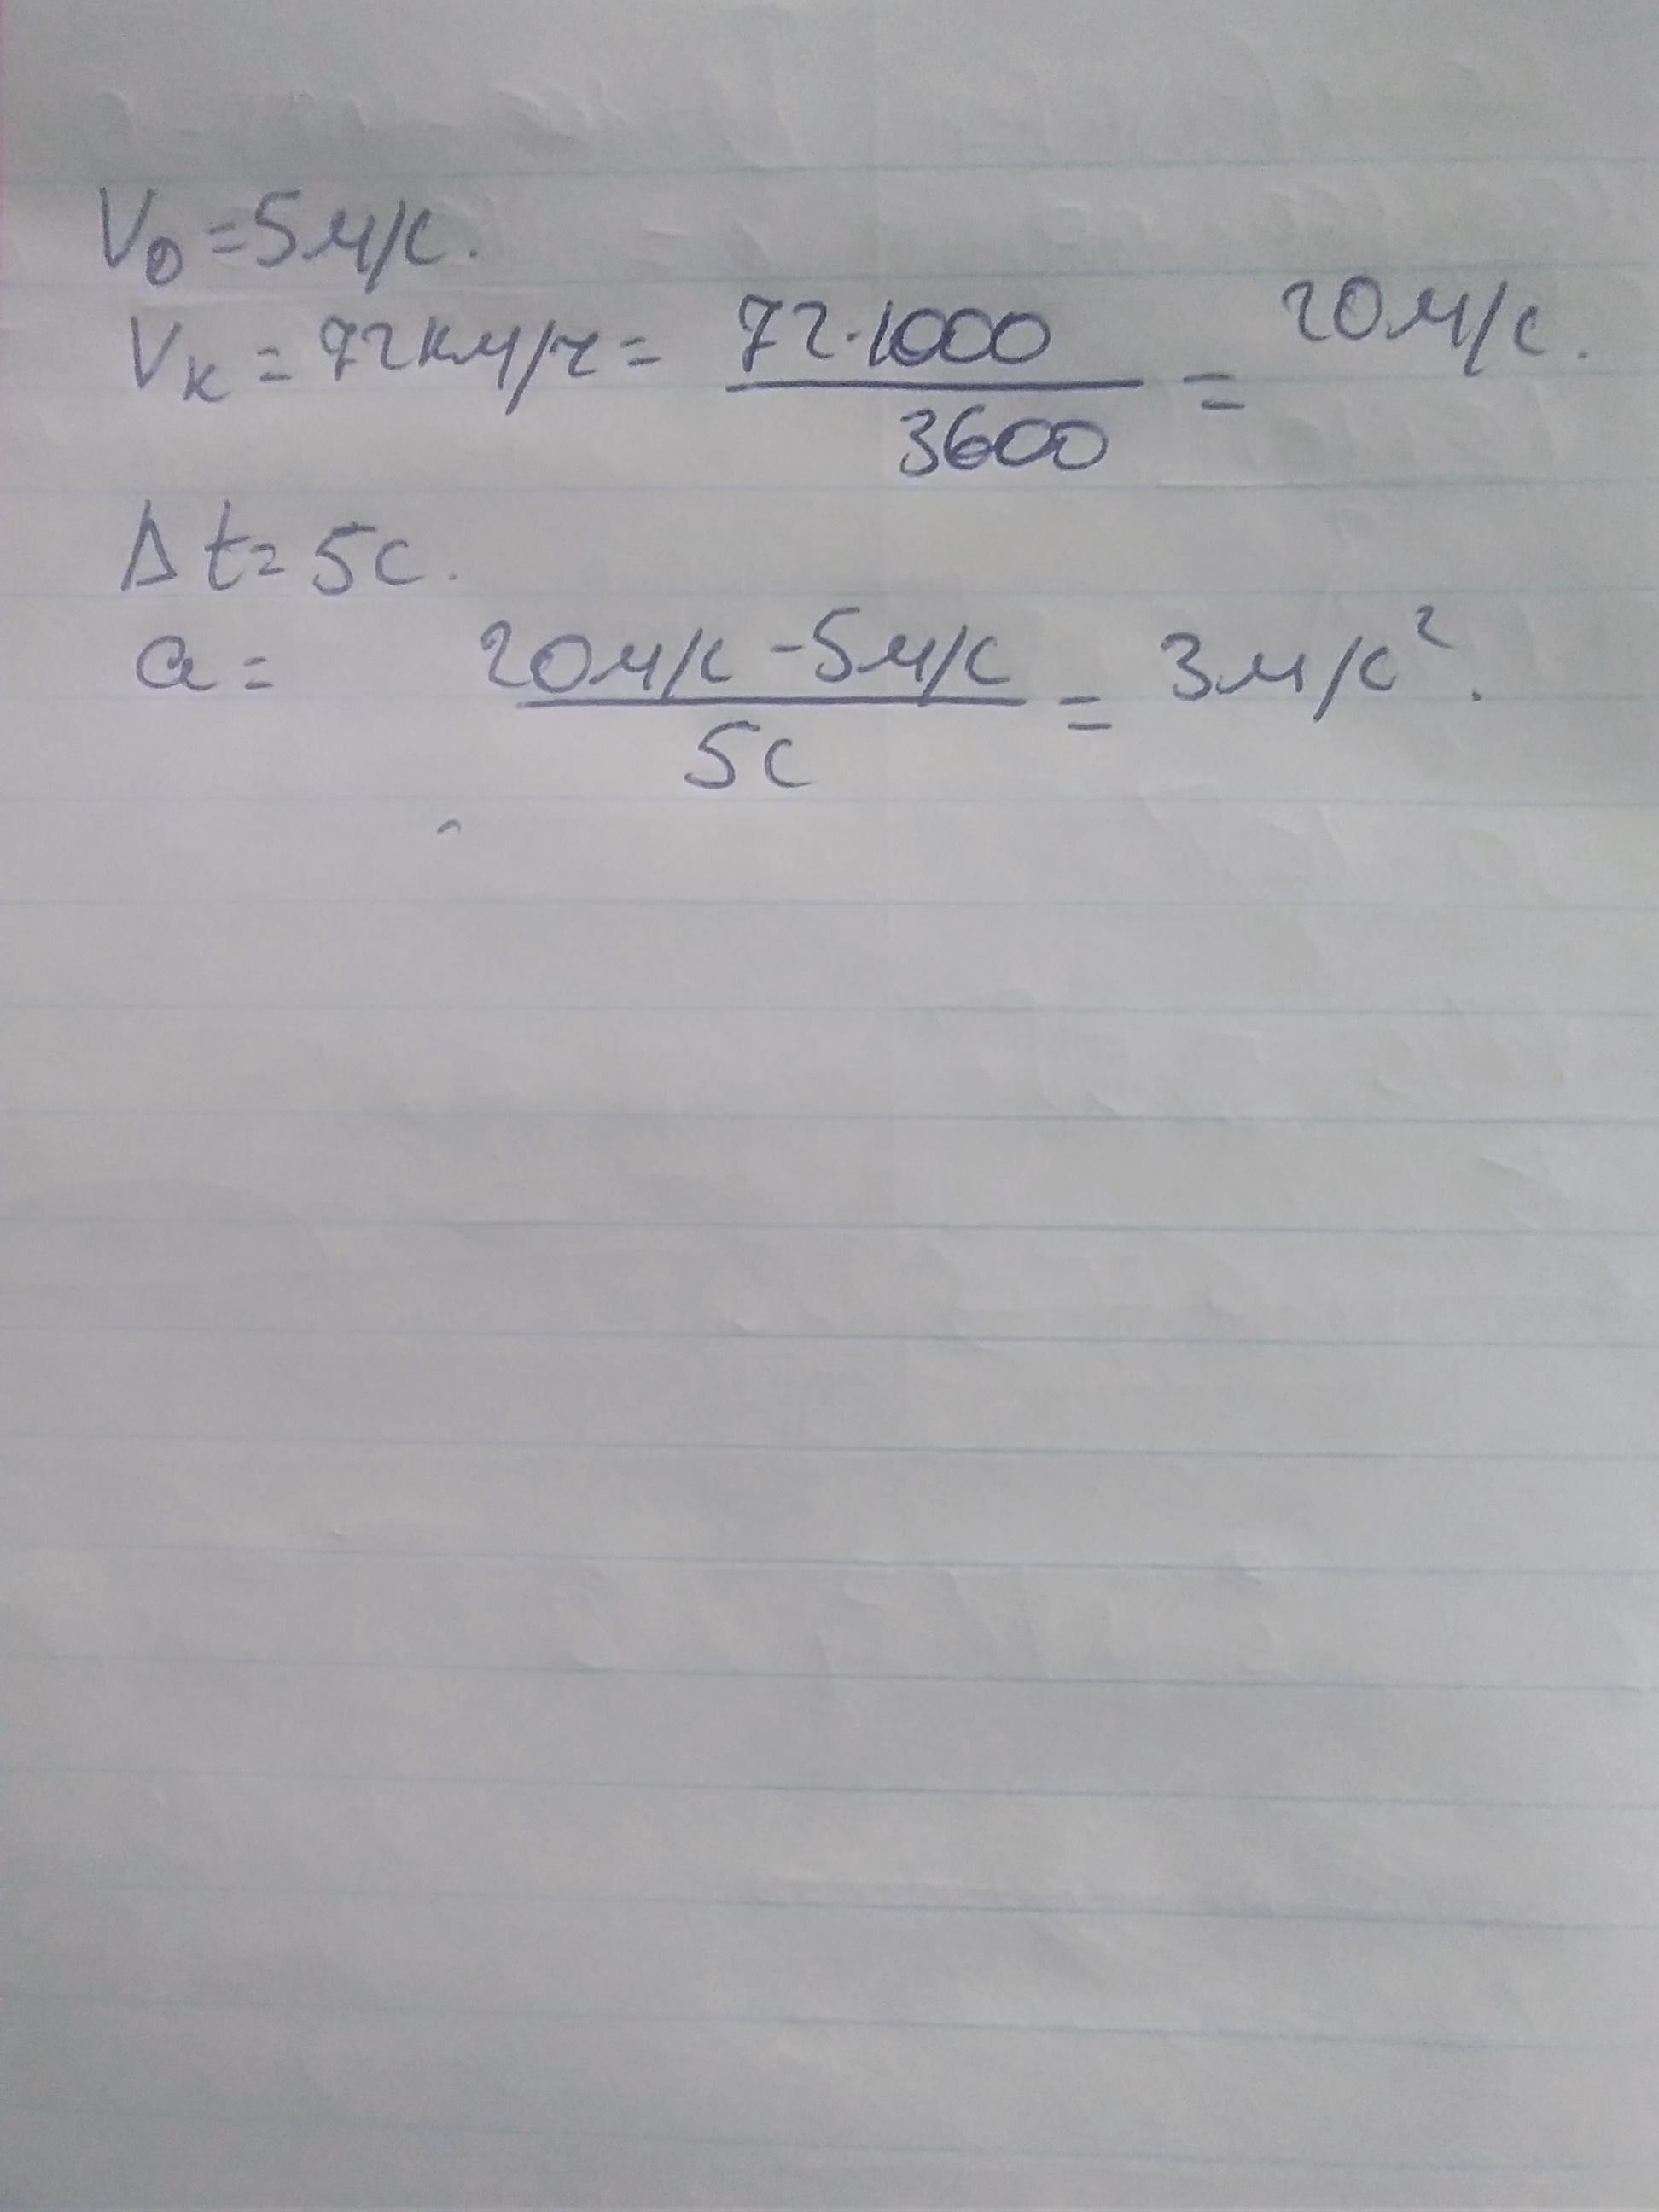 V₀ = 5 м/с.
Vк = 72 км/ч = 72·1000 / 3600 = 20 м/с.
Δt = 5с.
a = 20 м/с - 5 м/с / 5с = 3 м/с².